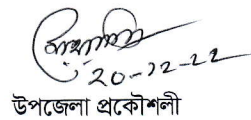 20-12-22
উপজেলা প্রকৌশলী